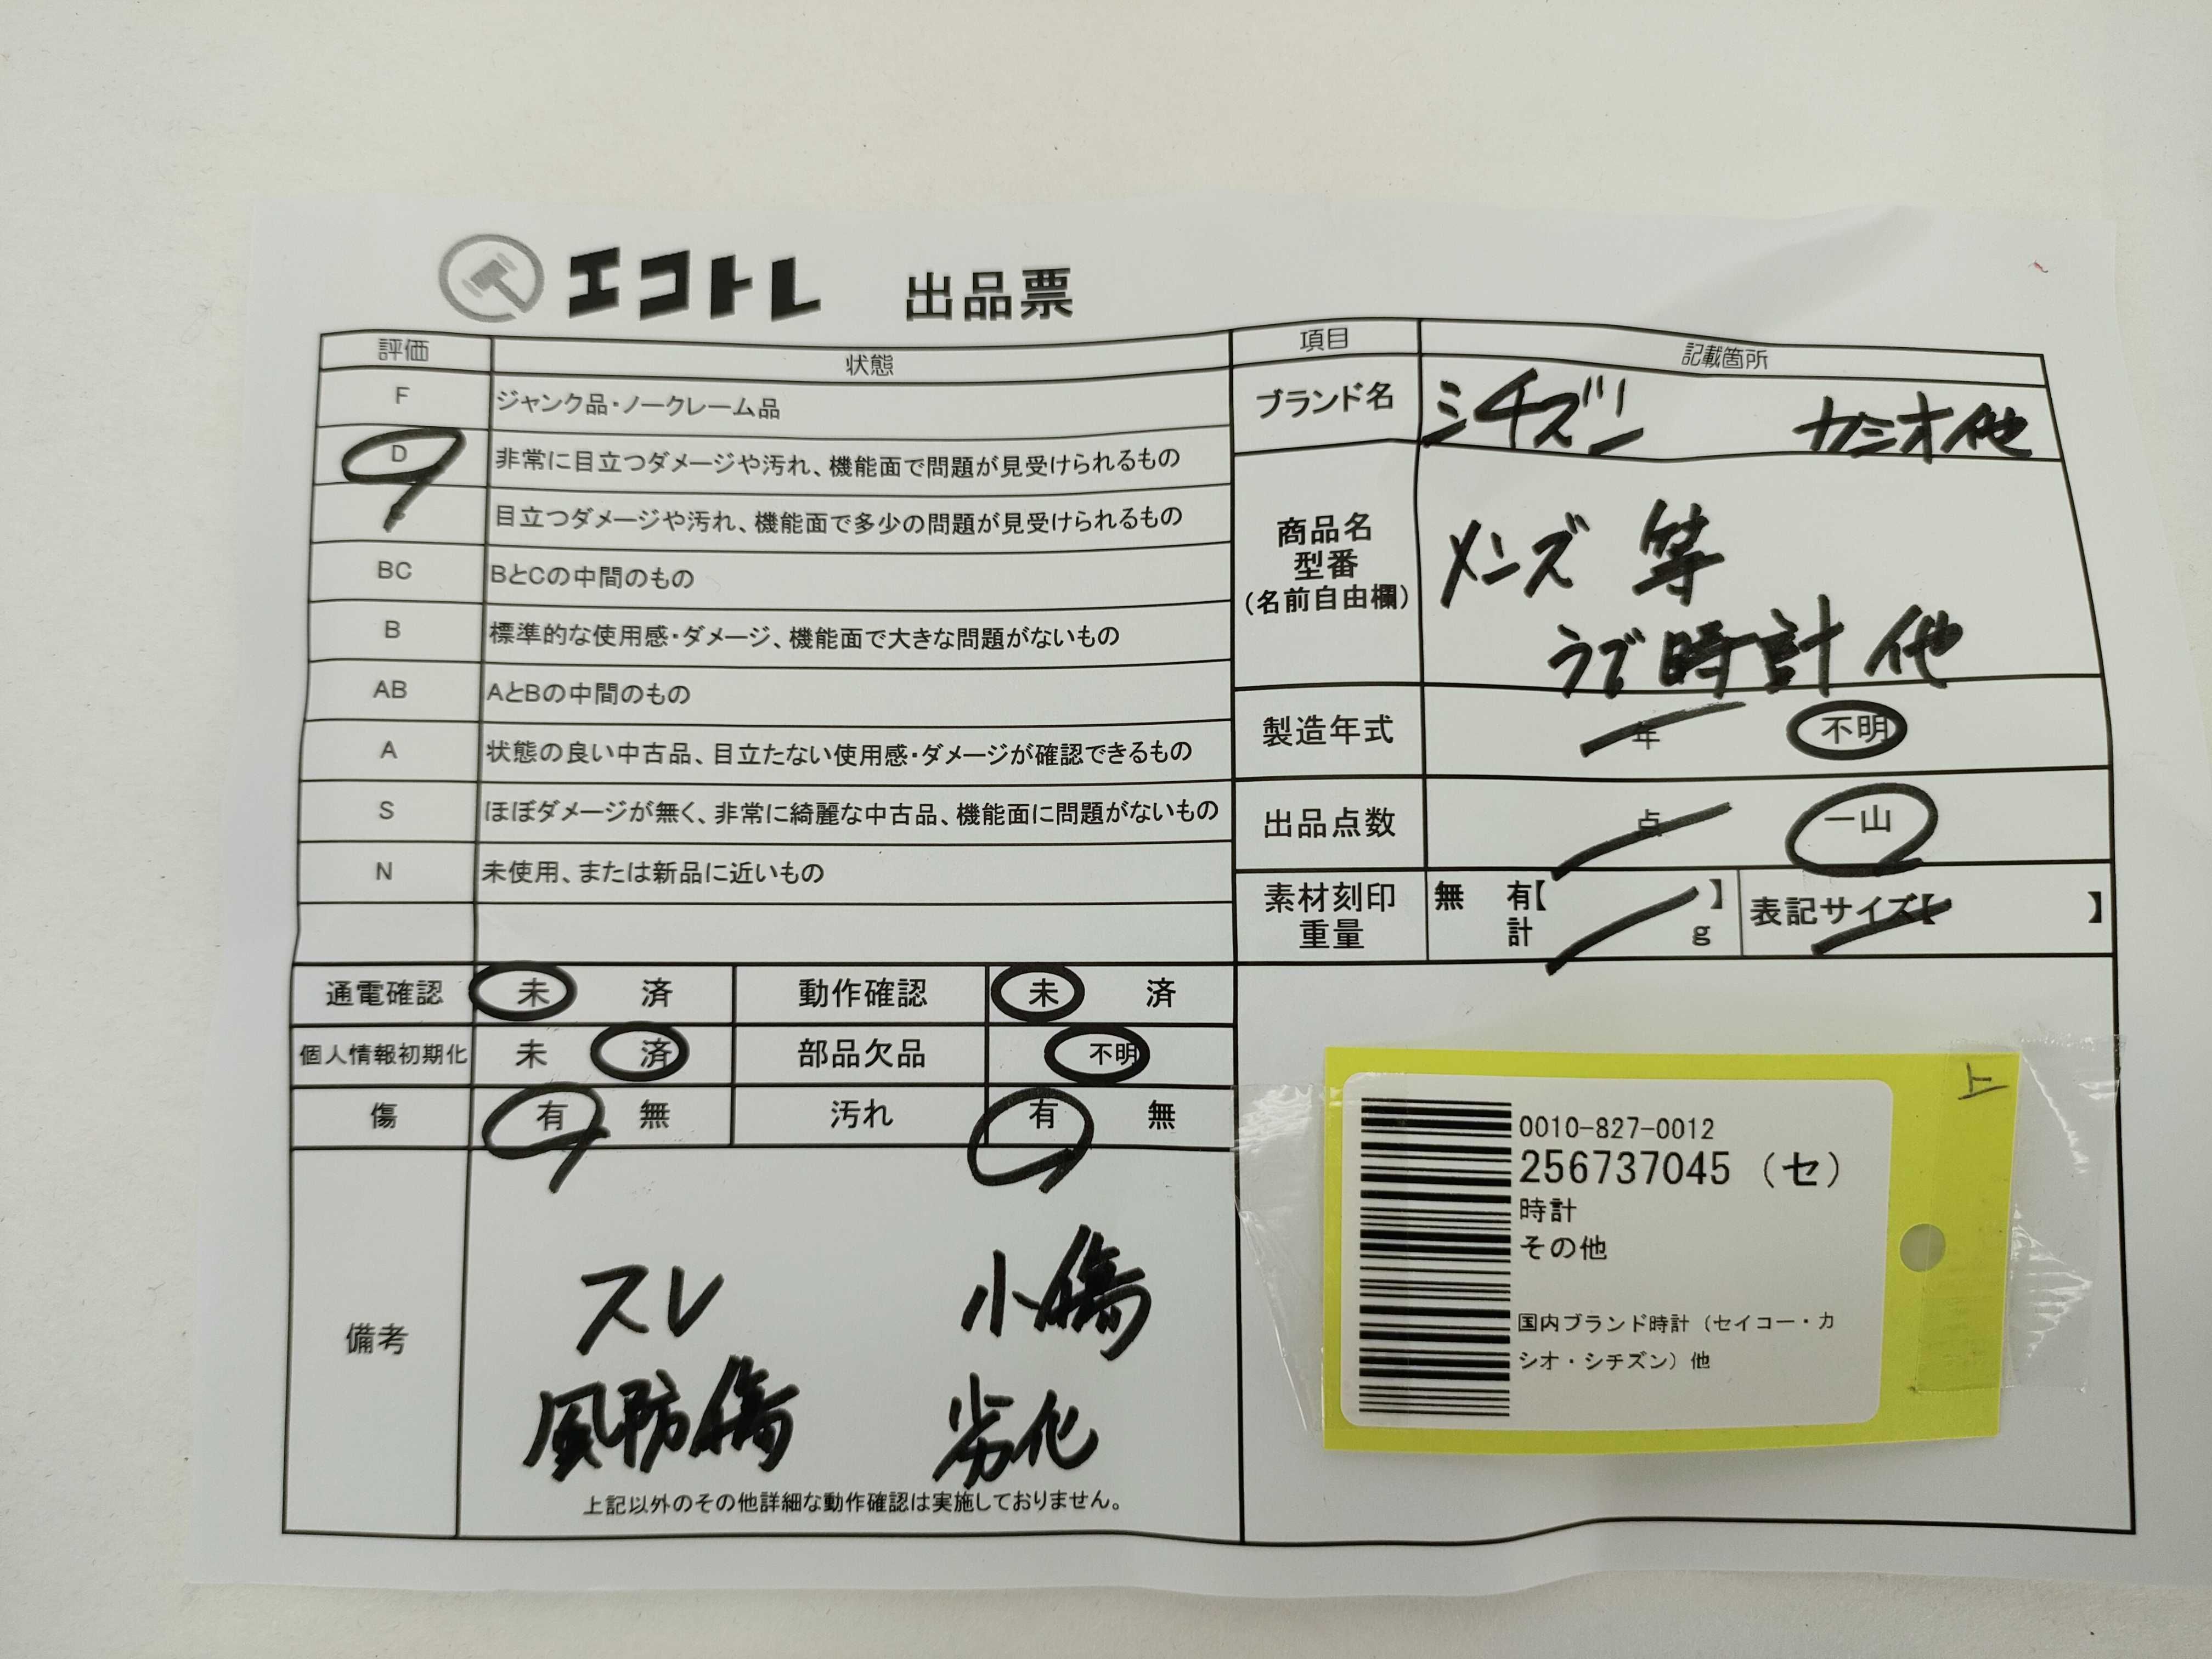 エコトレ 出品票
評価 状態
F ジャンク品・ノークレーム品
D 非常に目立つダメージや汚れ、機能面で問題が見受けられるもの
目立つダメージや汚れ、機能面で多少の問題が見受けられるもの
BC BとCの中間のもの
B 標準的な使用感・ダメージ、機能面で大きな問題がないもの
AB AとBの中間のもの
A 状態の良い中古品、目立たない使用感・ダメージが確認できるもの
S ほぼダメージが無く、非常に綺麗な中古品、機能面に問題がないもの
N 未使用、または新品に近いもの
通電確認 未 済 動作確認 未 済
個人情報初期化 未 済 部品欠品 不明
傷 有 無 汚れ 有 無
備考
スレ 小傷
風防傷 劣化
上記以外のその他詳細な動作確認は実施しておりません。
項目 記載箇所
ブランド名 シチズン カシオ他
商品名
型番
(名前自由欄)
メンズ 等
うで時計 他
製造年式 年 不明
出品点数 点 一山
素材刻印 無 有【 】 表記サイズ【 】
重量 計 g
上
0010-827-0012
256737045 (セ)
時計
その他
国内ブランド時計（セイコー・カ
シオ・シチズン）他